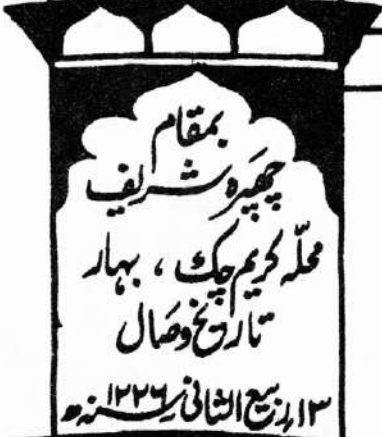 بمقام
چھپرہ شریف
محلّہ کریم چک ، بہار
تاریخ وصال
۱۳ ربیع الثانی ۱۲۲۶ سنہ ھ